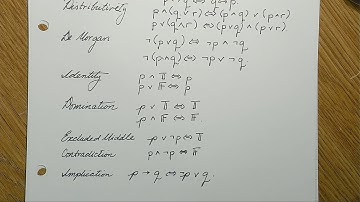 Distributivity p∧(q∨r) ⇔ (p∧q) ∨ (p∧r)
p∨(q∧r) ⇔ (p∨q) ∧ (p∨r)
De Morgan ¬(p∨q) ⇔ ¬p ∧ ¬q
¬(p∧q) ⇔ ¬p ∨ ¬q
Identity p ∧ 𝕋 ⇔ p
p ∨ 𝔽 ⇔ p
Domination p ∨ 𝕋 ⇔ 𝕋
p ∧ 𝔽 ⇔ 𝔽
Excluded Middle p ∨ ¬p ⇔ 𝕋
Contradiction p ∧ ¬p ⇔ 𝔽
Implication p → q ⇔ ¬p ∨ q.